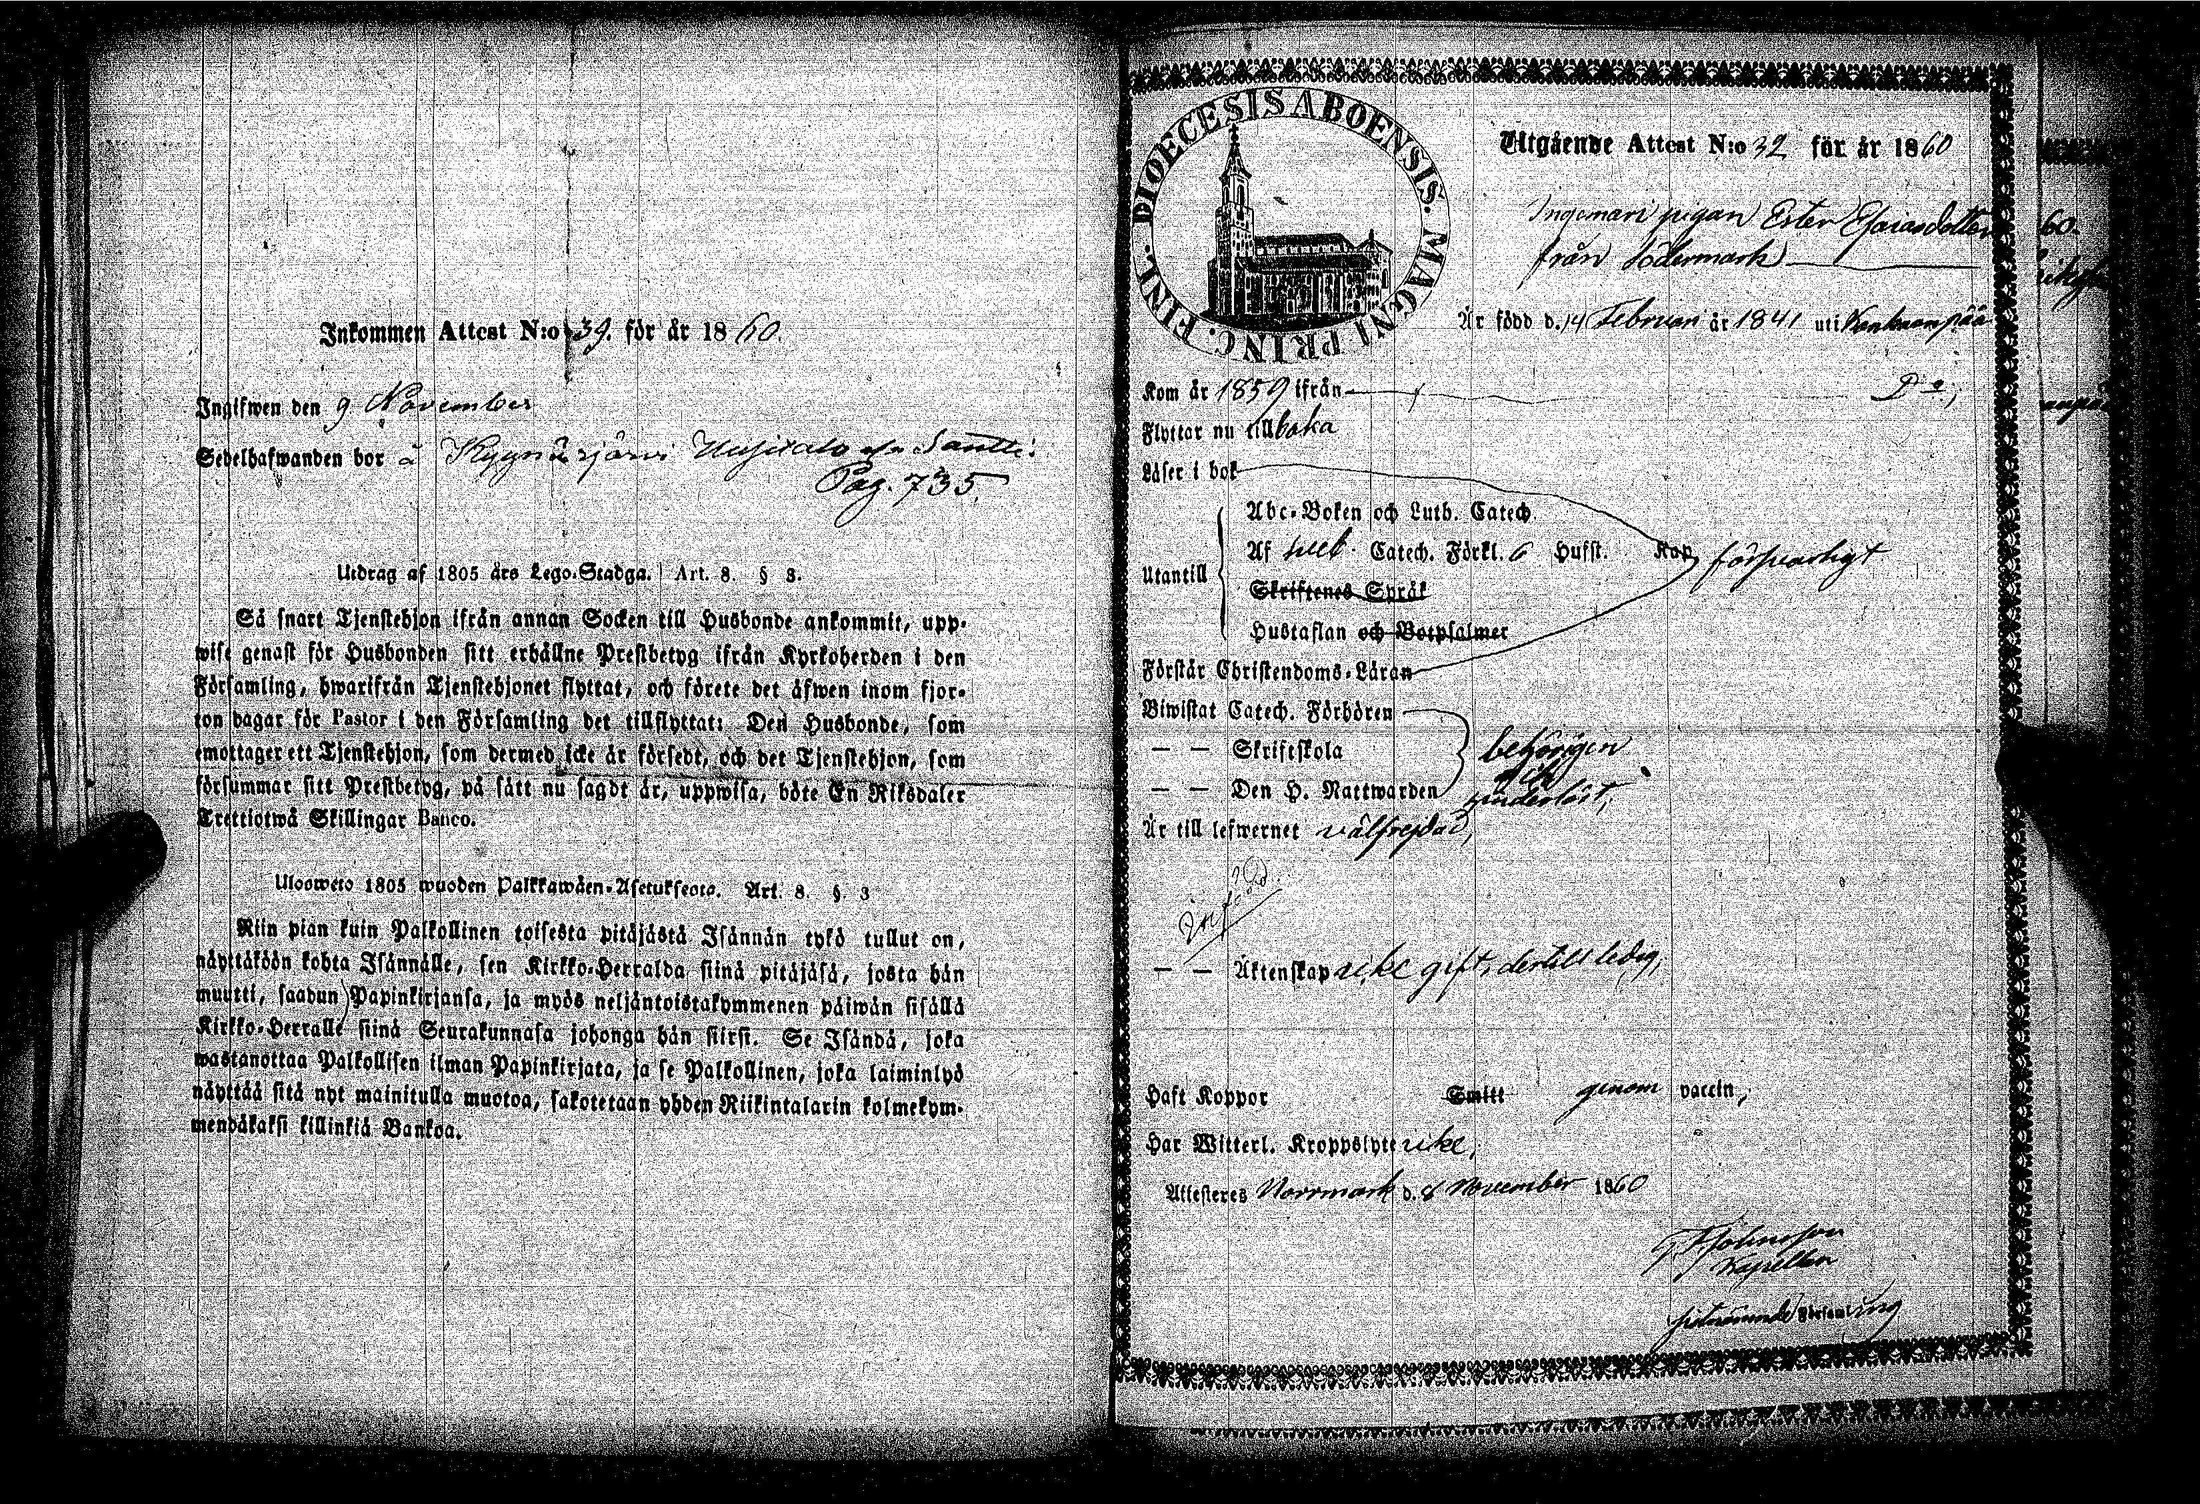 Inkommen Attest N:o 39. för år 1860.
Ingifwen den 9 November
Sedelhafwanden bor å Kyynärjärvi Uusitalo Santti
Pag. 735.
Utdrag af 1805 års Lego-Stadga. Art. 8. § 3.
Så snart Tjenstehjon ifrån annan Socken till Husbonde ankommit, upp-
wise genast för Husbonden sitt erhållne Prestbetyg ifrån Kyrkoherden i den
Församling, hwarifrån Tjenstehjonet flyttat, och förete det äfwen inom fjor-
ton dagar för Pastor i den Församling det tillflyttat: Den Husbonde, som
emottager ett Tjenstehjon, som dermed icke är försedt, och det Tjenstehjon, som
försummar sitt Prestbetyg, på sätt nu sagdt är, uppwisa, böte En Riksdaler
Trettiotwå Skillingar Banco.
Ulosweto 1805 wuoden Palkkawäen-Asetuksesta. Art. 8. §. 3
Niin pian kuin Palkollinen toisesta pitäjästä Isännän tykö tullut on,
näyttäköön kohta Isännälle, sen Kirkko-Herralda siinä pitäjäsä, josta hän
muutti, saadun Papinkirjansa, ja myös neljäntoistakymmenen päiwän sisällä
Kirkko-Herralle siinä Seurakunnasa johonga hän siirsi. Se Isändä, joka
wastanottaa Palkollisen ilman Papinkirjata, ja se Palkollinen, joka laiminlyö
näyttää sitä nyt mainitulla muotoa, sakotetaan yhden Riikintalarin kolmekym-
mendäkaksi killinkiä Bankoa.
DIOECESIS ABOENSIS. MAGNI PRINC. FINL.
Utgående Attest N:o 32 för år 1860
pigan Ester Esaiasdotter
från Södermark
Är född d. 14 Februari år 1841 uti Kankaanpää
Kom år 1859 ifrån D:o,
Flyttar nu tillbaka
Läser i bok
Abc-Boken och Luth. Catech.
Utantill Af Sveb. Catech. Förkl. 6 Hufst. Kap försvarligt
Skriftenes Språk
Hustaflan och Botpsalmer
Förstår Christendoms-Läran
Biwistat Catech. Förhören
— — Skriftskola behörigen
och
— — Den H. Nattwarden
Är till lefwernet välfrejdad,
— — Äktenskap icke gift, dertill ledig,
Haft Koppor Smitt genom vaccin,
Har Witterl. Kroppslyte icke,
Attesteres Norrmark d. 8 November 1860
Kapellan